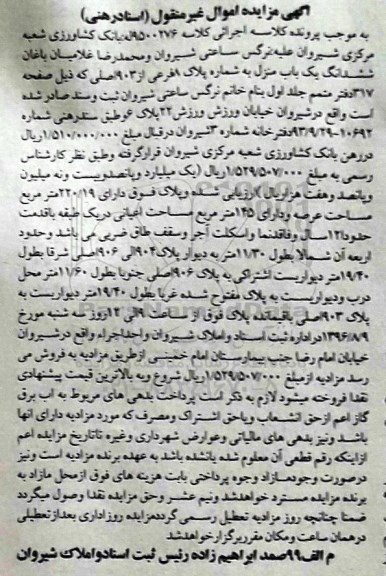 آگهی مزایده اموال غیرمنقول (اسنادرهنی)
به موجب پرونده کلاسه اجرائی کلاسه ۹۵۰۰۲۷۶له بانک کشاورزی شعبه
مرکزی شیروان علیه نرگس ساعتی شیروان ومحمدرضا غلامیان باغان
ششدانگ یک باب منزل به شماره پلاک ۱فرعی از۹۰۳اصلی که ذیل صفحه
۳۱۷دفتر متمم جلد اول بنام خانم نرگس ساعتی شیروان ثبت وسند صادر شده
است واقع درشیروان خیابان ورزش ورزش۲۲پلاک ۶وطبق سندرهنی شماره
۱۰۶۹۲-۹۳/۹/۲۹دفترخانه شماره ۳شیروان درقبال مبلغ ۱/۵۱۰/۰۰۰/۰۰۰ریال
دررهن بانک کشاورزی شعبه مرکزی شیروان قرارگرفته وطبق نظر کارشناس
رسمی به مبلغ ۱/۵۲۹/۵۰۷/۰۰۰ریال (یک میلیارد وپانصدوبیست ونه میلیون
وپانصد وهفت هزارریال)ارزیابی شده وپلاک فوق دارای ۲۲۰/۱۹متر مربع
مساحت عرصه ودارای ۱۴۵متر مربع مساحت اعیانی دریک طبقه باقدمت
حدود۱۲سال وفاقدنما واسکلت آجر وسقف طاق ضربی می باشد وحدود
اربعه آن شمالا بطول ۱۱/۳۰متر به دیوار پلاک۹۰۴الی ۹۰۶اصلی شرقا بطول
۱۹/۴۰متر دیواریست اشتراکی به پلاک ۹۰۶اصلی جنوبا بطول ۱۱/۶۰متر محل
درب ودیواریست به پلاک مفتوح شده غربا بطول ۱۹/۴۰متر دیواریست به
پلاک ۹۰۳اصلی باقیمانده پلاک فوق از ساعت ۹الی ۱۲روز سه شنبه مورخ
۱۳۹۶/۸/۹دراداره ثبت اسناد واملاک شیروان واحداجراء واقع درشیروان
خیابان امام رضا جنب بیمارستان امام خمینی ازطریق مزایده به فروش می
رسد مزایده ازمبلغ ۱/۵۲۹/۵۰۷/۰۰۰ریال شروع وبه بالاترین قیمت پیشنهادی
نقدا فروخته میشود لازم به ذکر است پرداخت بدهی های مربوط به آب برق
گاز اعم ازحق انشعاب ویاحق اشتراک ومصرف که مورد مزایده دارای آنها
باشد ونیز بدهی های مالیاتی وعوارض شهرداری وغیره تاتاریخ مزایده اعم
ازاینکه رقم قطعی آن معلوم شده یانشده باشد به عهده برنده مزایده است ونیز
درصورت وجودمازاد وجوه پرداختی بابت هزینه های فوق ازمحل مازاد به
برنده مزایده مسترد خواهدشد ونیم عشر وحق مزایده نقدا وصول میگردد
ضمنا چنانچه روز مزایده تعطیل رسمی گرددمزایده روزاداری بعدازتعطیلی
درهمان ساعت ومکان مقرربرگزارخواهدشد
م الف۹۹صمد ابراهیم زاده رئیس ثبت اسنادواملاک شیروان